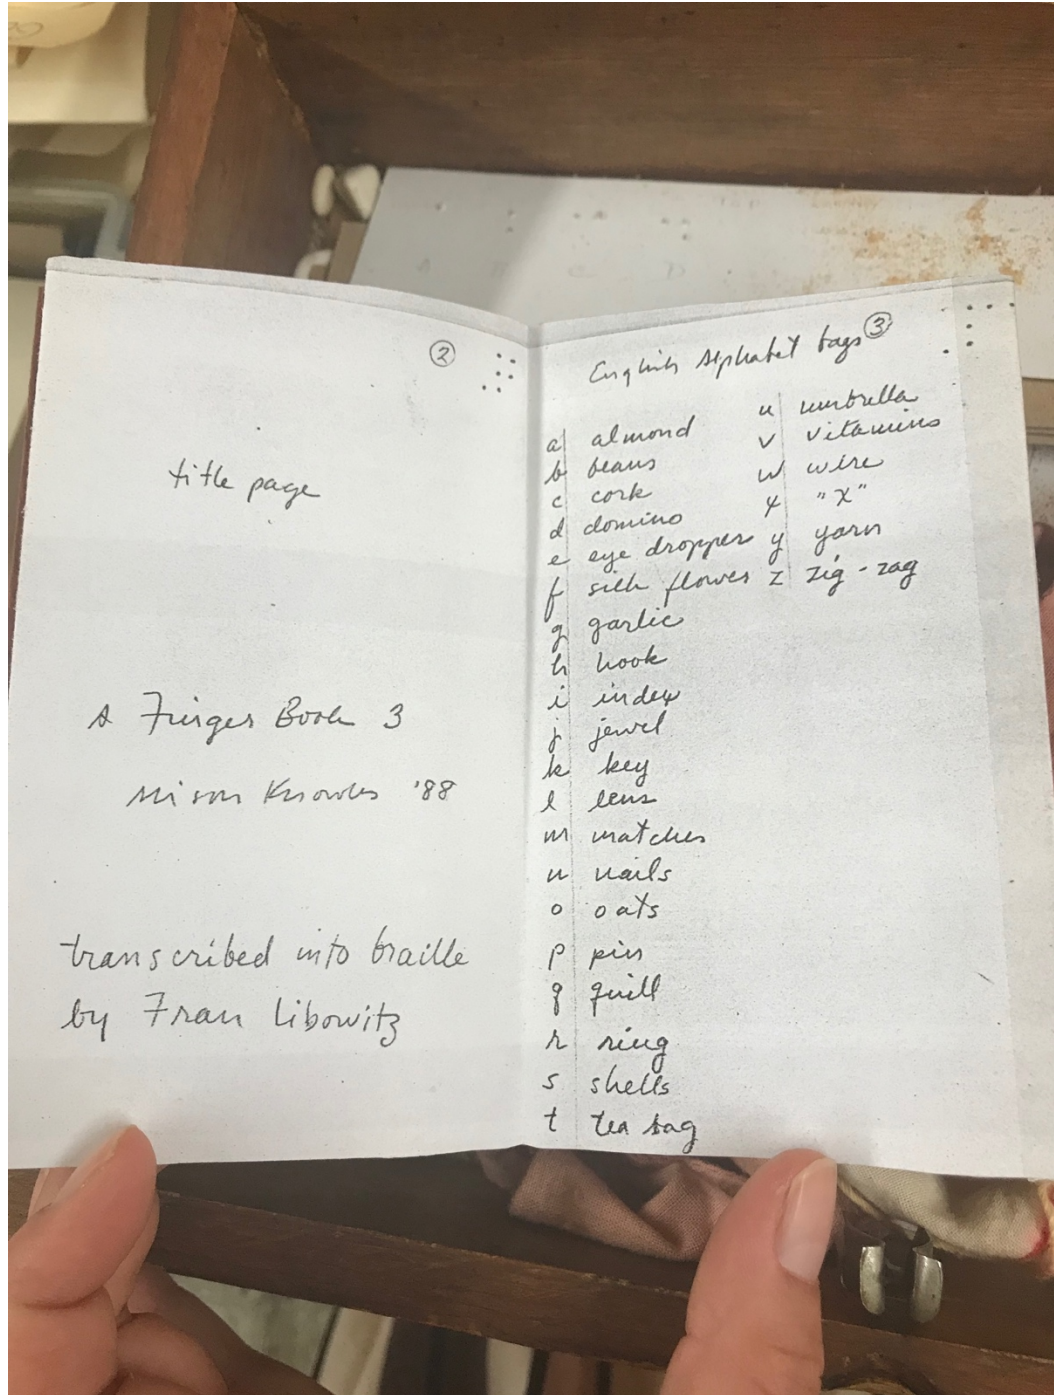 ②
title page
A Finger Book 3
Alison Knowles '88
transcribed into braille
by Fran Libowitz
③
English Alphabet bags
a almond
b beans
c cork
d domino
e eye dropper
f silk flower
g garlic
h hook
i index
j jewel
k key
l lens
m matches
n nails
o oats
p pin
q quill
r ring
s shells
t tea bag
u umbrella
v vitamins
w wire
x "X"
y yarn
z zig-zag